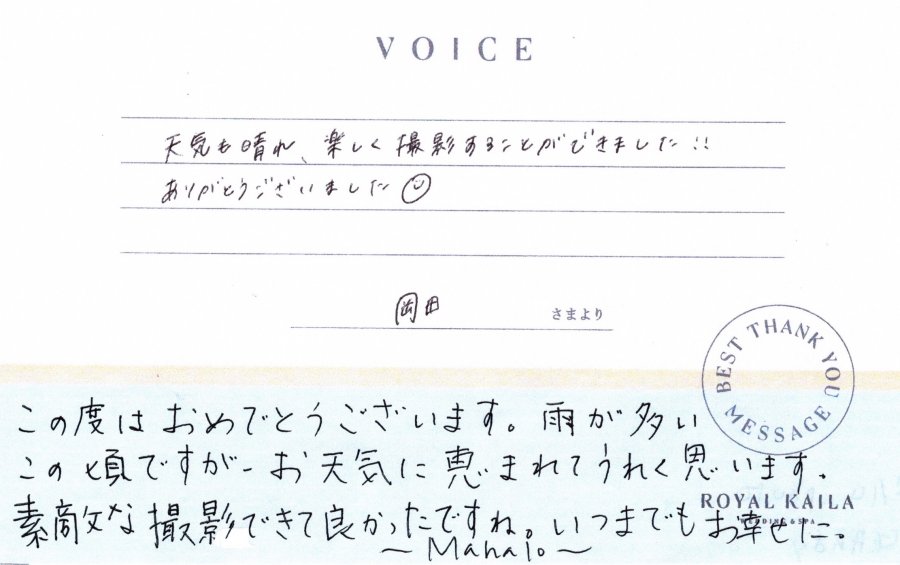 VOICE
天気も晴れ、楽しく撮影することができました!!
ありがとうございました
岡田 さまより
BEST THANK YOU MESSAGE
この度はおめでとうございます。雨が多い
この頃ですが、お天気に恵まれてうれしく思います。
素敵な撮影できて良かったですね。いつまでもお幸せに。
ROYAL KAILA
WEDDING & SPA
～Mahalo～